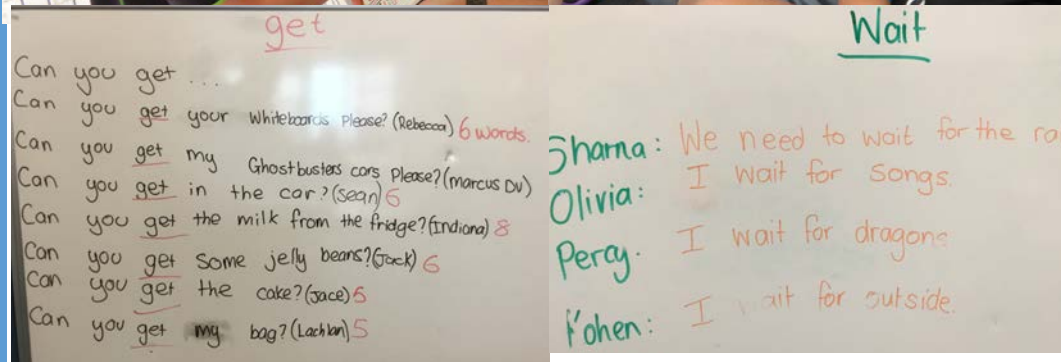 get
Can you get ...
Can you get your Whiteboards Please? (Rebecca) 6 words.
Can you get my Ghostbusters cars Please? (Marcus DV)
Can you get in the car? (Sean) 6
Can you get the milk from the fridge? (Indiana) 8
Can you get some jelly beans? (Jack) 6
Can you get the cake? (Jace) 5
Can you get my bag? (Lachlan) 5
Wait
Sharna: We need to wait for the
Olivia: I wait for songs.
Percy. I wait for dragons
Kohen: I wait for outside.